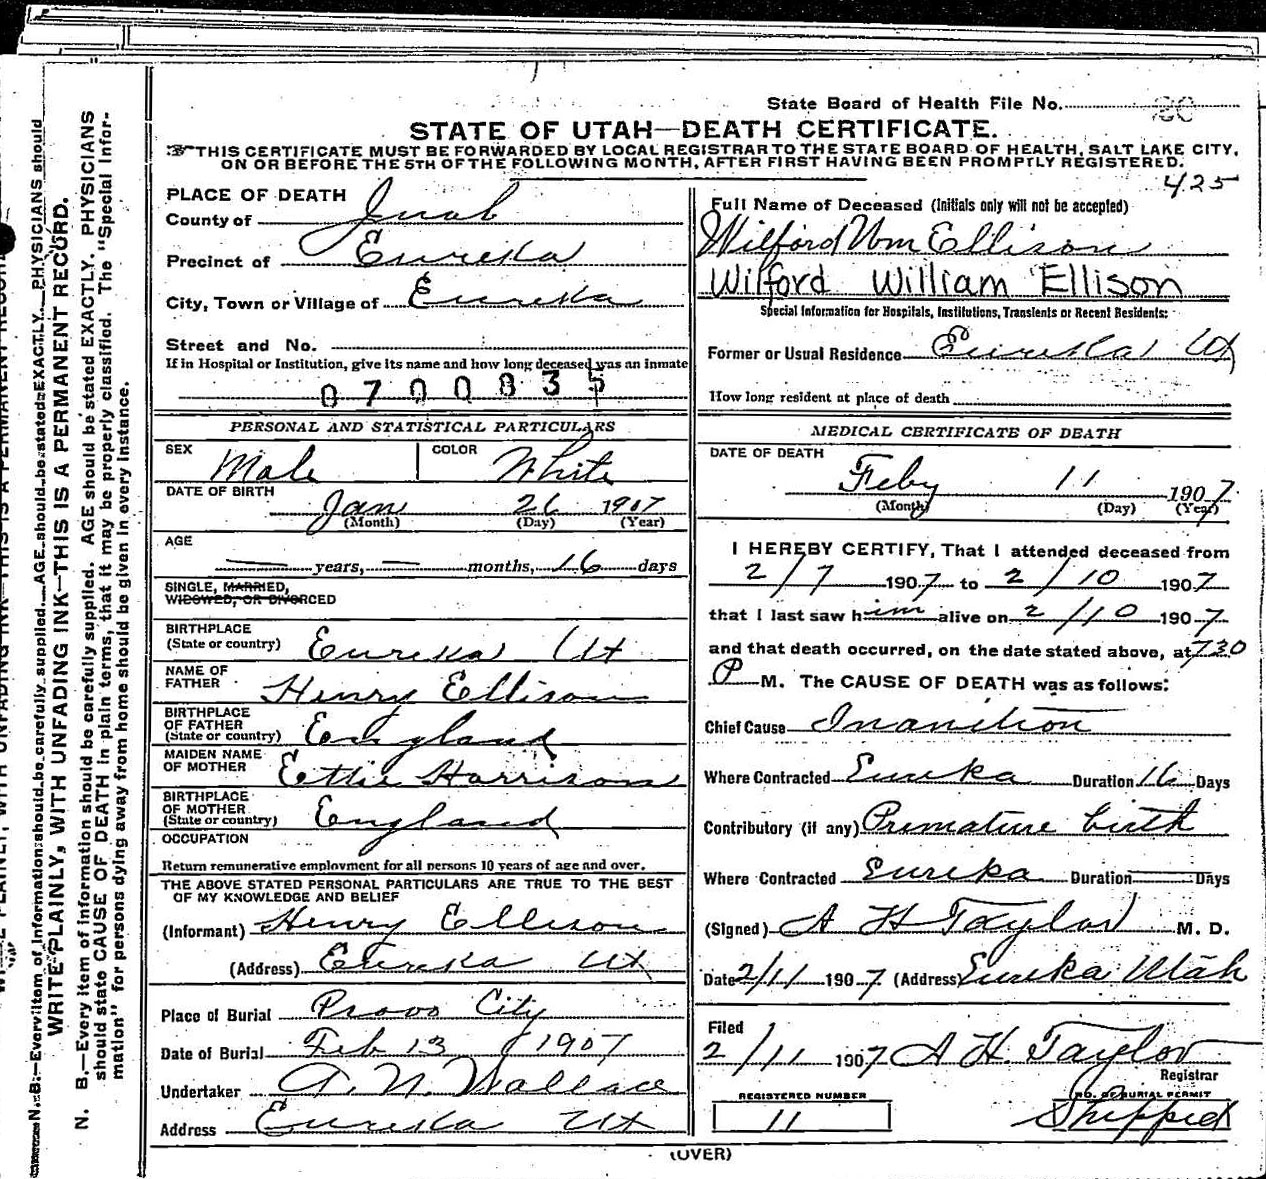 State Board of Health File No.
STATE OF UTAH—DEATH CERTIFICATE.
THIS CERTIFICATE MUST BE FORWARDED BY LOCAL REGISTRAR TO THE STATE BOARD OF HEALTH, SALT LAKE CITY,
ON OR BEFORE THE 5TH OF THE FOLLOWING MONTH, AFTER FIRST HAVING BEEN PROMPTLY REGISTERED.
425
PLACE OF DEATH
County of Juab
Precinct of Eureka
City, Town or Village of Eureka
Street and No.
If in Hospital or Institution, give its name and how long deceased was an inmate
0700835
PERSONAL AND STATISTICAL PARTICULARS
SEX Male COLOR White
DATE OF BIRTH
Jan 26 1907
(Month) (Day) (Year)
AGE
— years, — months, 16 days
SINGLE, MARRIED,
WIDOWED, OR DIVORCED
BIRTHPLACE
(State or country) Eureka Ut
NAME OF
FATHER Henry Ellison
BIRTHPLACE
OF FATHER
(State or country) England
MAIDEN NAME
OF MOTHER Ettie Harrison
BIRTHPLACE
OF MOTHER
(State or country) England
OCCUPATION
Return remunerative employment for all persons 10 years of age and over.
THE ABOVE STATED PERSONAL PARTICULARS ARE TRUE TO THE BEST
OF MY KNOWLEDGE AND BELIEF
(Informant) Henry Ellison
(Address) Eureka Ut
Place of Burial Provo City
Date of Burial Feb 13 1907
Undertaker A. N. Wallace
Address Eureka Ut
Full Name of Deceased (Initials only will not be accepted)
Wilford Wm Ellison
Wilford William Ellison
Special Information for Hospitals, Institutions, Transients or Recent Residents:
Former or Usual Residence Eureka Ut
How long resident at place of death
MEDICAL CERTIFICATE OF DEATH
DATE OF DEATH
Feby 11 1907
(Month) (Day) (Year)
I HEREBY CERTIFY, That I attended deceased from
2/7 1907 to 2/10 1907
that I last saw him alive on 2/10 1907
and that death occurred, on the date stated above, at 730
P M. The CAUSE OF DEATH was as follows:
Chief Cause Inanition
Where Contracted Eureka Duration 16 Days
Contributory (if any) Premature birth
Where Contracted Eureka Duration — Days
(Signed) A H Taylor M. D.
Date 2/11 1907 (Address) Eureka Utah
Filed
2/11 1907 A H. Taylor
Registrar
REGISTERED NUMBER
11
NO. OF BURIAL PERMIT
Shipped
(OVER)
N. B.—Every item of information should be carefully supplied. AGE should be stated EXACTLY. PHYSICIANS should
WRITE PLAINLY, WITH UNFADING INK—THIS IS A PERMANENT RECORD.
N. B.—Every item of information should be carefully supplied. AGE should be stated EXACTLY. PHYSICIANS
should state CAUSE OF DEATH in plain terms, that it may be properly classified. The "Special Infor-
mation" for persons dying away from home should be given in every instance.